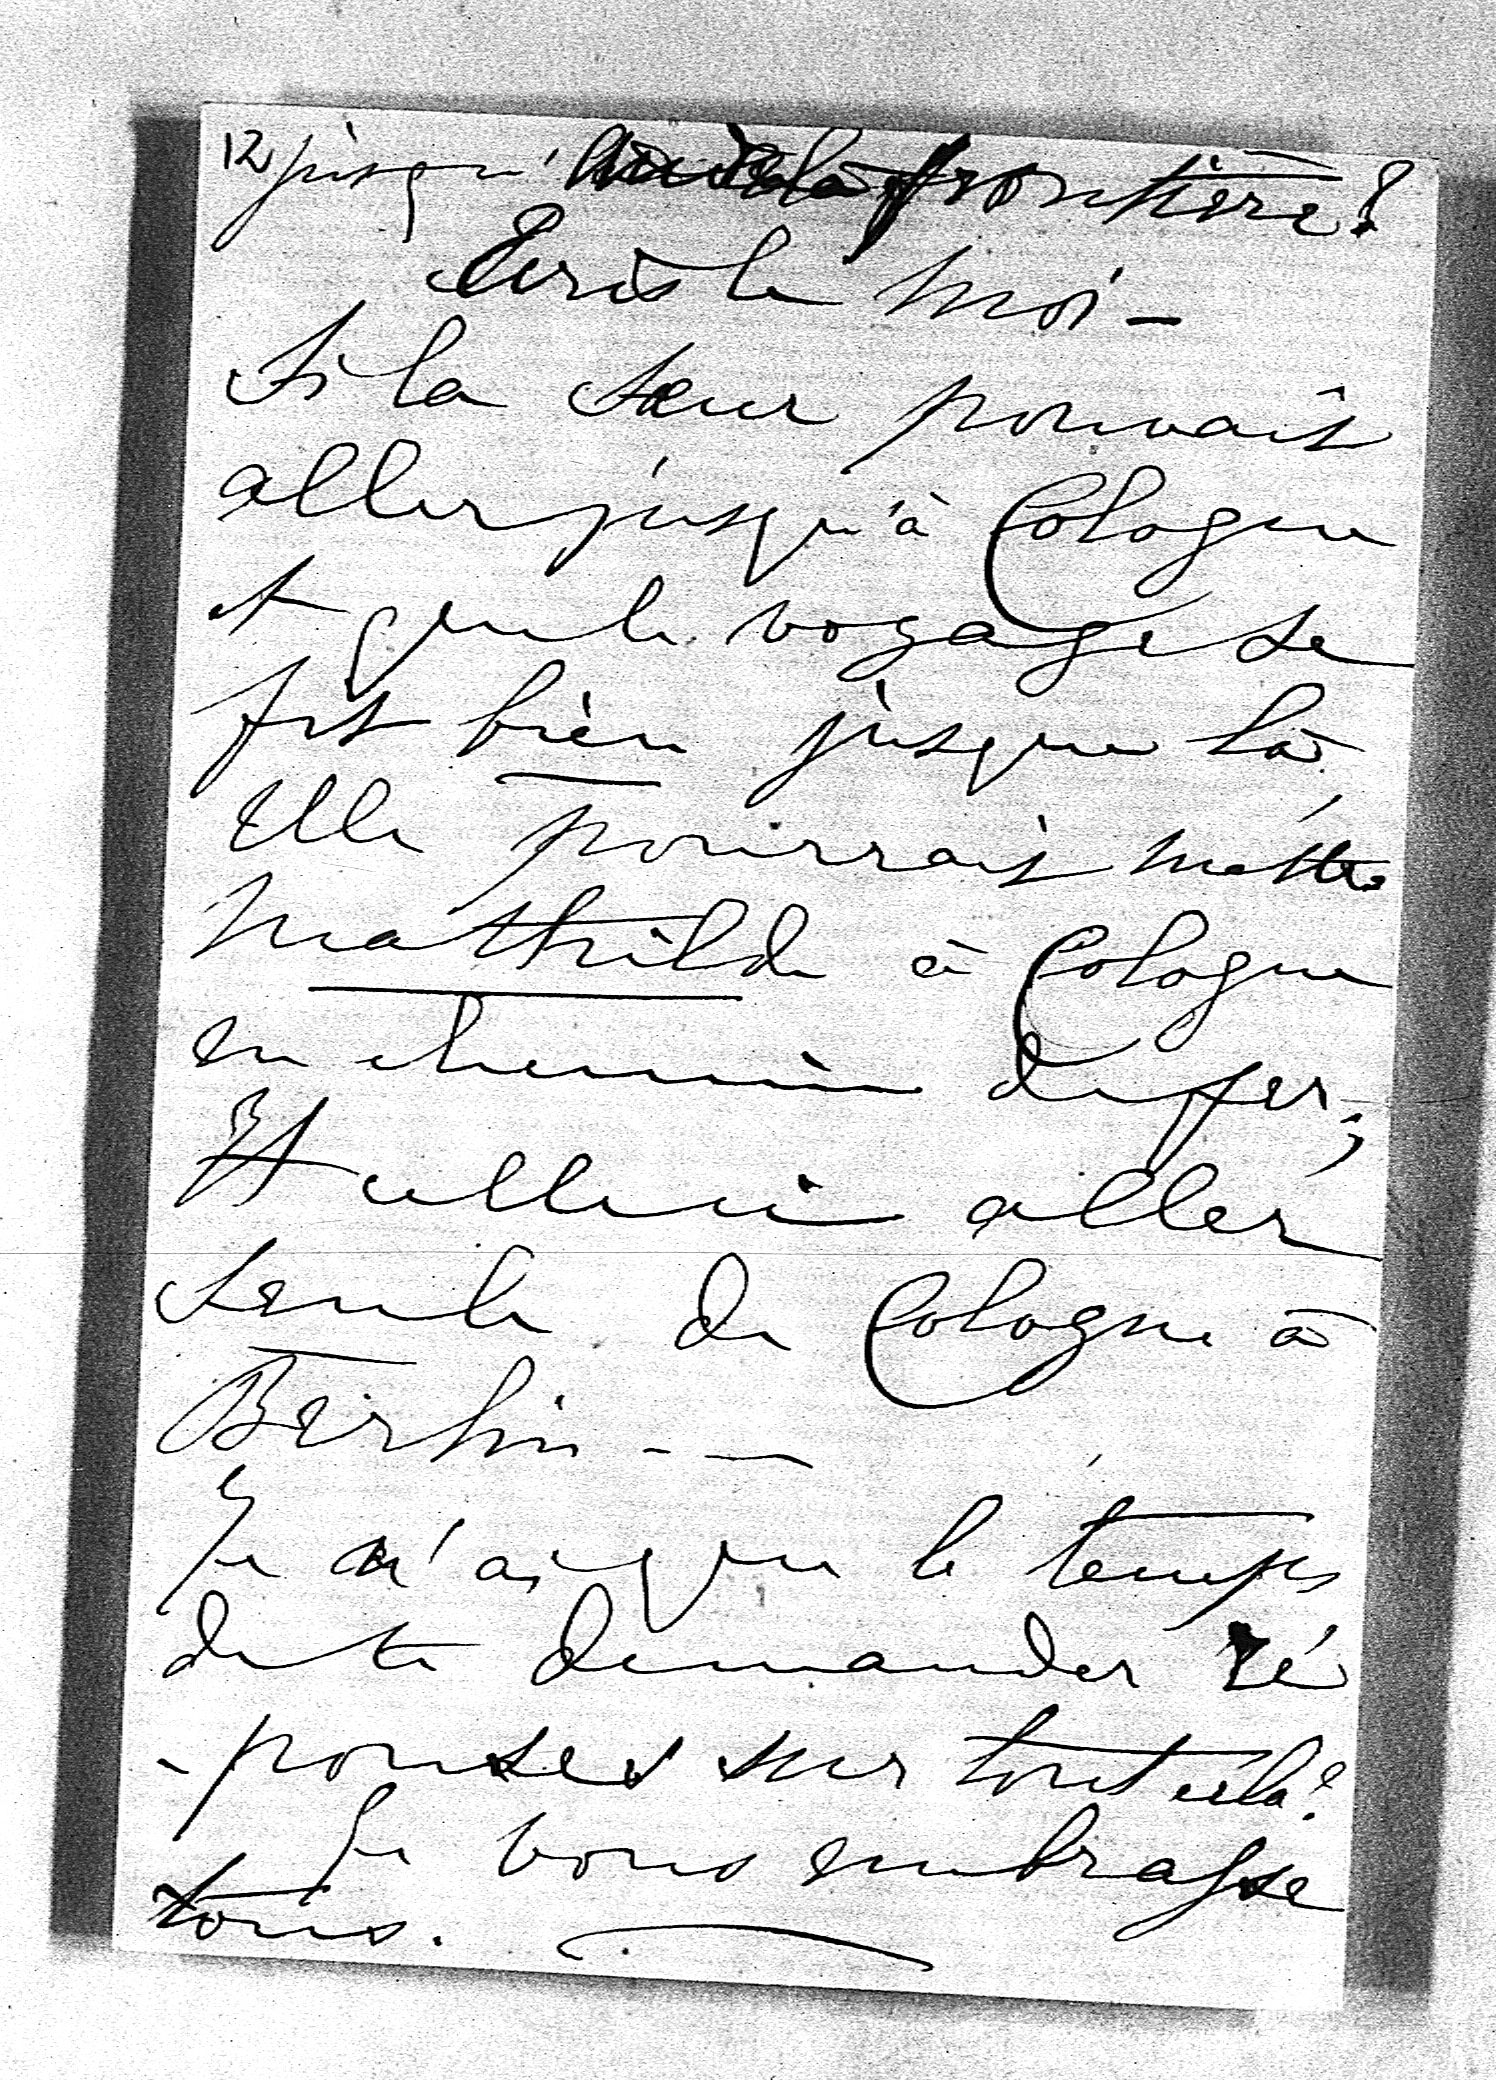 12 jusqu'à la frontière?
Ecris le moi –
Si la sœur pouvait
aller jusqu'à Cologne
et que le voyage se
fit bien jusque là
elle pourrait mettre
Mathilde à Cologne
en chemin de fer,
Et celle ci aller
seule de Cologne à
Berlin - —
Je n'ai que le temps
de te demander ré
-ponses sur tout cela?
Je vous embrasse
tous.